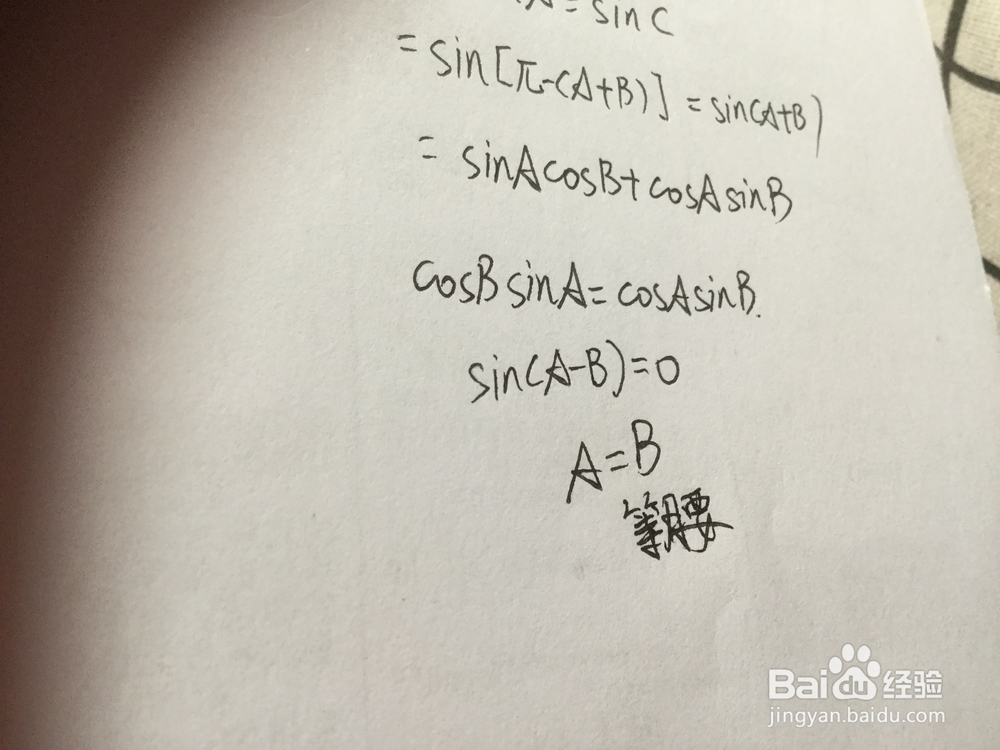 = sin C
= sin[π-(A+B)] = sin(A+B)
= sinAcosB+cosAsinB
cosB sinA = cosAsinB.
sin(A-B)=0
A=B
等腰
Baidu 经验
jingyan.baidu.com